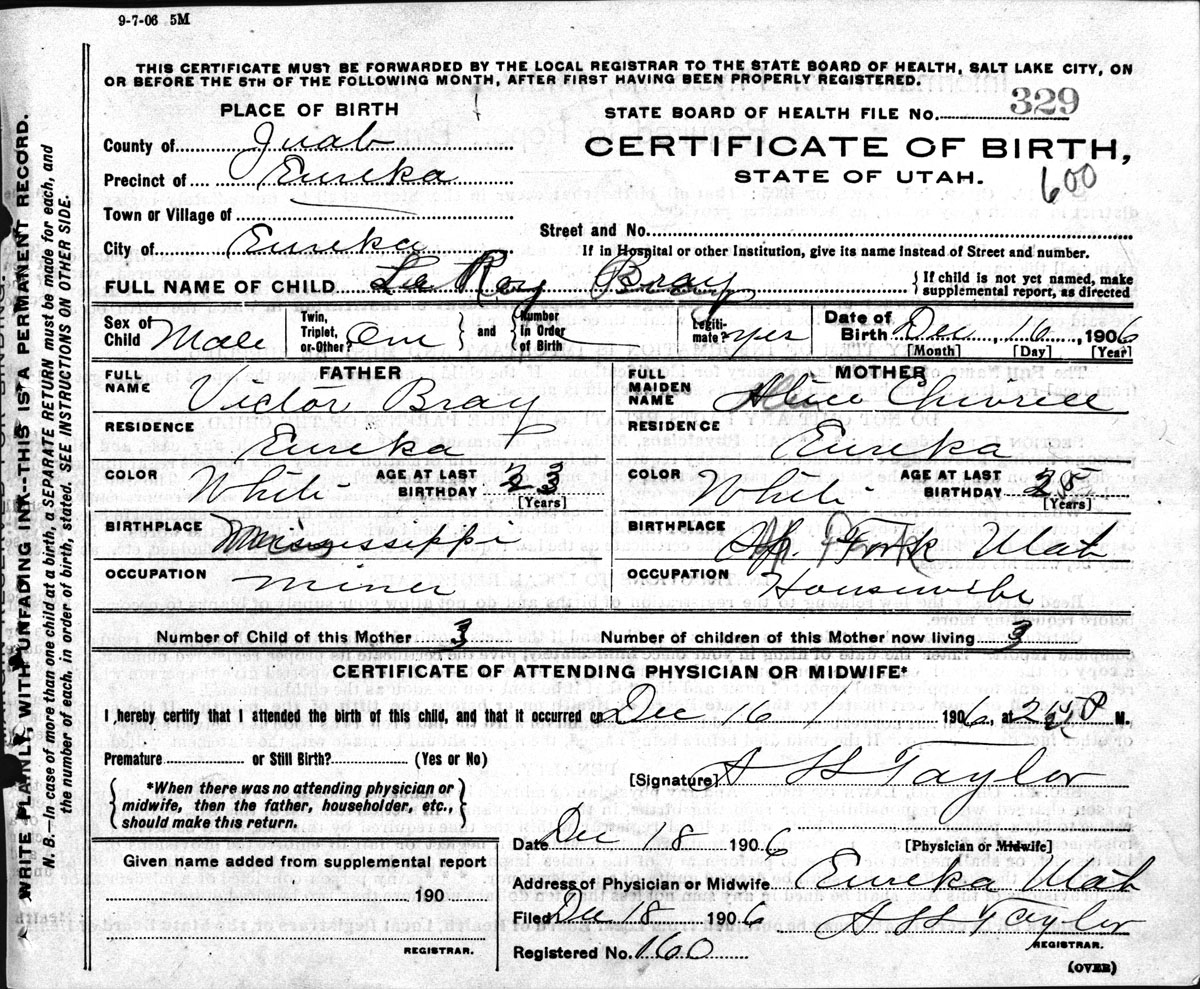 9-7-06 5M
THIS CERTIFICATE MUST BE FORWARDED BY THE LOCAL REGISTRAR TO THE STATE BOARD OF HEALTH, SALT LAKE CITY, ON
OR BEFORE THE 5TH OF THE FOLLOWING MONTH, AFTER FIRST HAVING BEEN PROPERLY REGISTERED.
PLACE OF BIRTH
STATE BOARD OF HEALTH FILE No. 329
County of Juab
CERTIFICATE OF BIRTH,
Precinct of Eureka
STATE OF UTAH.
600
Town or Village of
Street and No.
City of Eureka
If in Hospital or other Institution, give its name instead of Street and number.
FULL NAME OF CHILD Le Roy Bray
{If child is not yet named, make
supplemental report, as directed
Sex of Child Male
Twin, Triplet, or-Other? One } and { Number In Order of Birth
Legiti-mate? yes
Date of Birth Dec 16, 1906
[Month] [Day] [Year]
FATHER
FULL NAME Victor Bray
RESIDENCE Eureka
COLOR White AGE AT LAST BIRTHDAY 23
[Years]
BIRTHPLACE Mississippi
OCCUPATION Miner
MOTHER
FULL MAIDEN NAME Alice
RESIDENCE Eureka
COLOR White AGE AT LAST BIRTHDAY 25
[Years]
BIRTHPLACE Sp. Fork Utah
OCCUPATION Housewife
Number of Child of this Mother 3 Number of children of this Mother now living 3
CERTIFICATE OF ATTENDING PHYSICIAN OR MIDWIFE*
I hereby certify that I attended the birth of this child, and that it occurred on Dec 16 1906, at 2 P M.
Premature or Still Birth? (Yes or No)
[Signature] A H Taylor
{*When there was no attending physician or
midwife, then the father, householder, etc.,
should make this return.}
Date Dec 18 1906
[Physician or Midwife]
Given name added from supplemental report
190
REGISTRAR.
Address of Physician or Midwife Eureka Utah
Filed Dec 18 1906 A H Taylor
REGISTRAR.
Registered No. 160
(OVER)
WRITE PLAINLY, WITH UNFADING INK--THIS IS A PERMANENT RECORD.
N. B.—In case of more than one child at a birth, a SEPARATE RETURN must be made for each, and
the number of each, in order of birth, stated. SEE INSTRUCTIONS ON OTHER SIDE.